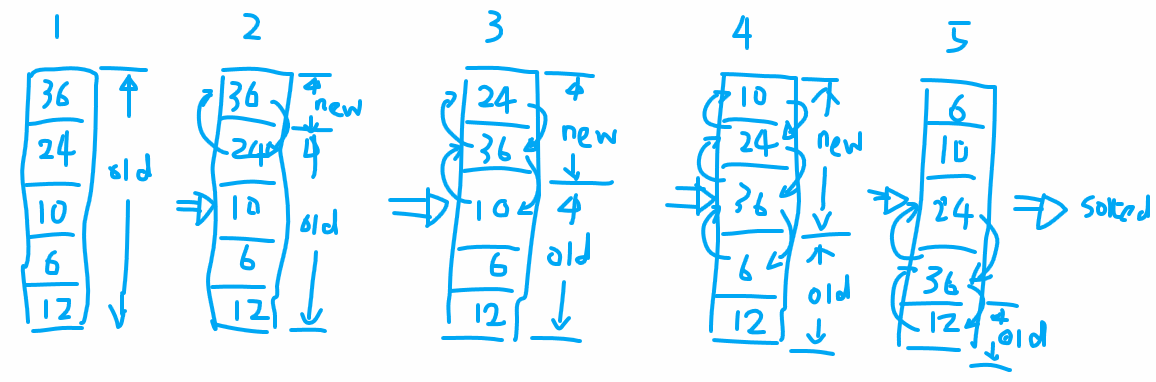 1
36
24
10
6
12
old
2
36
24
10
6
12
new
old
3
24
36
10
6
12
new
old
4
10
24
36
6
12
new
old
5
6
10
24
36
12
old
sorted